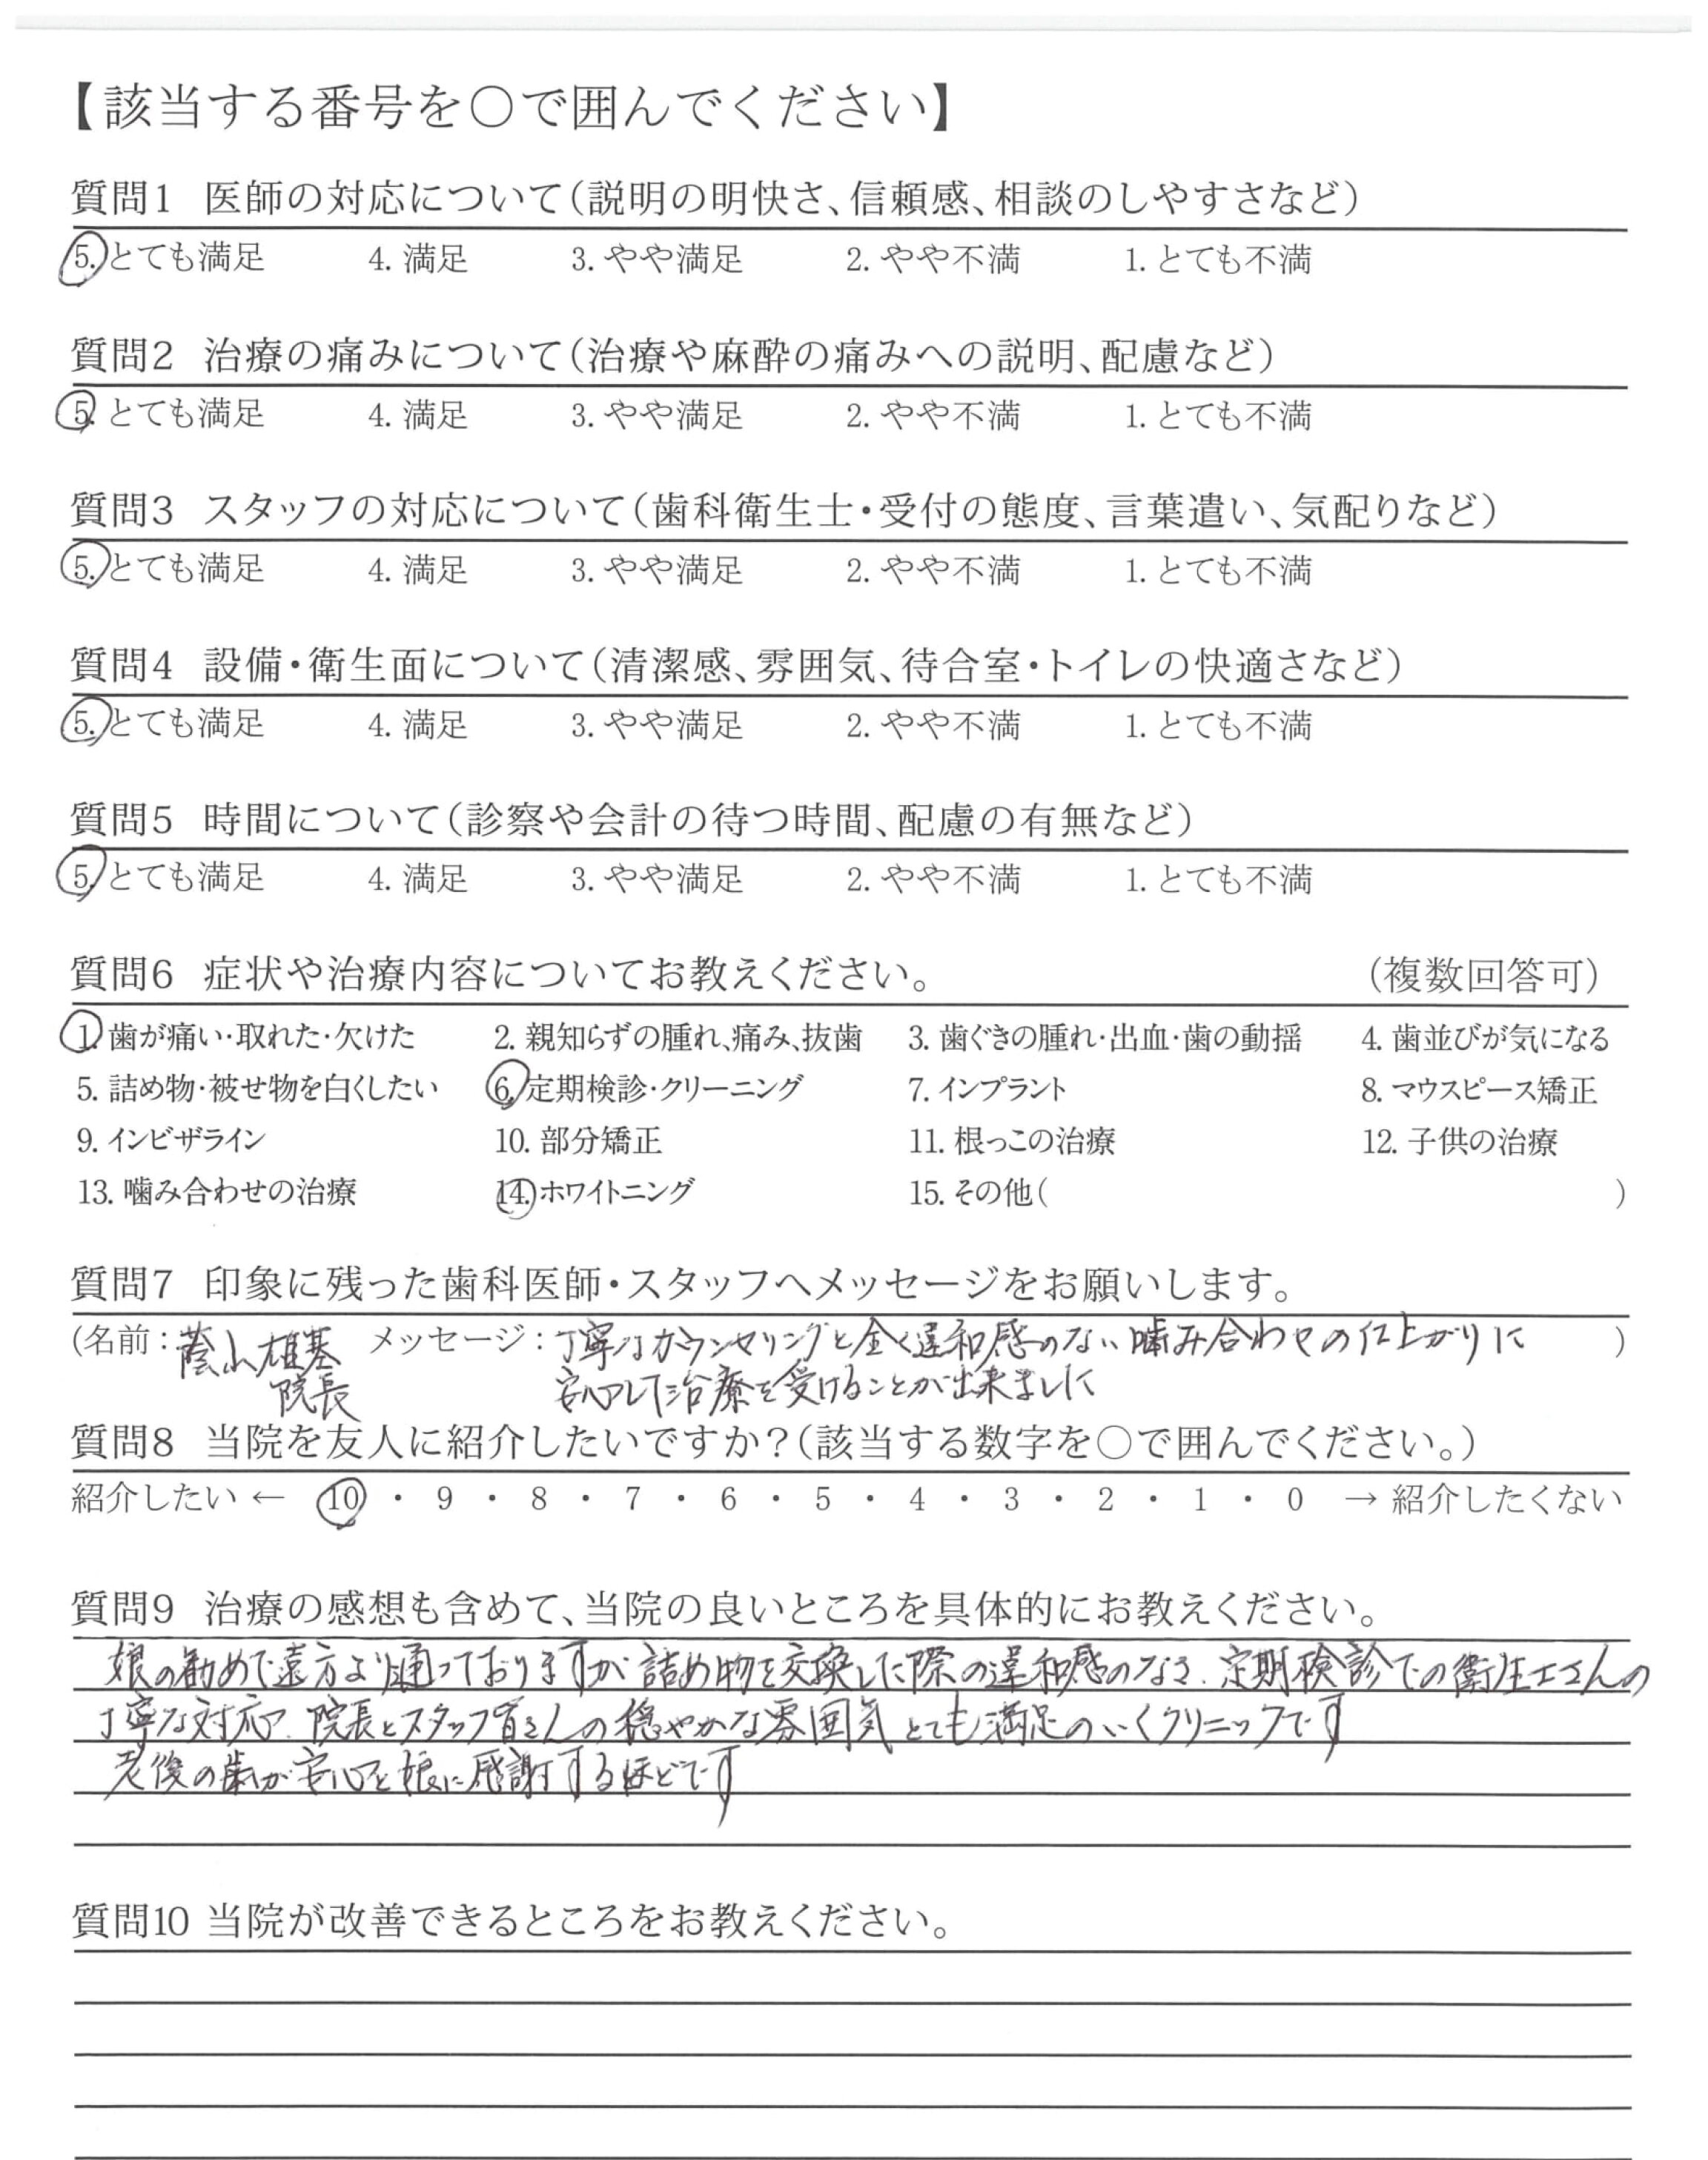 【該当する番号を○で囲んでください】
質問1 医師の対応について(説明の明快さ、信頼感、相談のしやすさなど)
5. とても満足 4. 満足 3. やや満足 2. やや不満 1. とても不満
質問2 治療の痛みについて(治療や麻酔の痛みへの説明、配慮など)
5. とても満足 4. 満足 3. やや満足 2. やや不満 1. とても不満
質問3 スタッフの対応について(歯科衛生士・受付の態度、言葉遣い、気配りなど)
5. とても満足 4. 満足 3. やや満足 2. やや不満 1. とても不満
質問4 設備・衛生面について(清潔感、雰囲気、待合室・トイレの快適さなど)
5. とても満足 4. 満足 3. やや満足 2. やや不満 1. とても不満
質問5 時間について(診察や会計の待つ時間、配慮の有無など)
5. とても満足 4. 満足 3. やや満足 2. やや不満 1. とても不満
質問6 症状や治療内容についてお教えください。 (複数回答可)
1. 歯が痛い・取れた・欠けた 2. 親知らずの腫れ、痛み、抜歯 3. 歯ぐきの腫れ・出血・歯の動揺 4. 歯並びが気になる
5. 詰め物・被せ物を白くしたい 6. 定期検診・クリーニング 7. インプラント 8. マウスピース矯正
9. インビザライン 10. 部分矯正 11. 根っこの治療 12. 子供の治療
13. 噛み合わせの治療 14. ホワイトニング 15. その他( )
質問7 印象に残った歯科医師・スタッフへメッセージをお願いします。
(名前：蔭山雄基 メッセージ：丁寧なカウンセリングと全く違和感のない噛み合わせの仕上がりに )
院長 安心して治療を受けることが出来ました
質問8 当院を友人に紹介したいですか？(該当する数字を○で囲んでください。)
紹介したい ← 10 ・ 9 ・ 8 ・ 7 ・ 6 ・ 5 ・ 4 ・ 3 ・ 2 ・ 1 ・ 0 → 紹介したくない
質問9 治療の感想も含めて、当院の良いところを具体的にお教えください。
娘の勧めで遠方より通っておりますが 詰め物を交換した際の違和感のなさ、定期検診での衛生士さんの
丁寧な対応、院長とスタッフ皆さんの穏やかな雰囲気 とても満足のいくクリニックです
老後の歯が安心と娘に感謝するほどです
質問10 当院が改善できるところをお教えください。